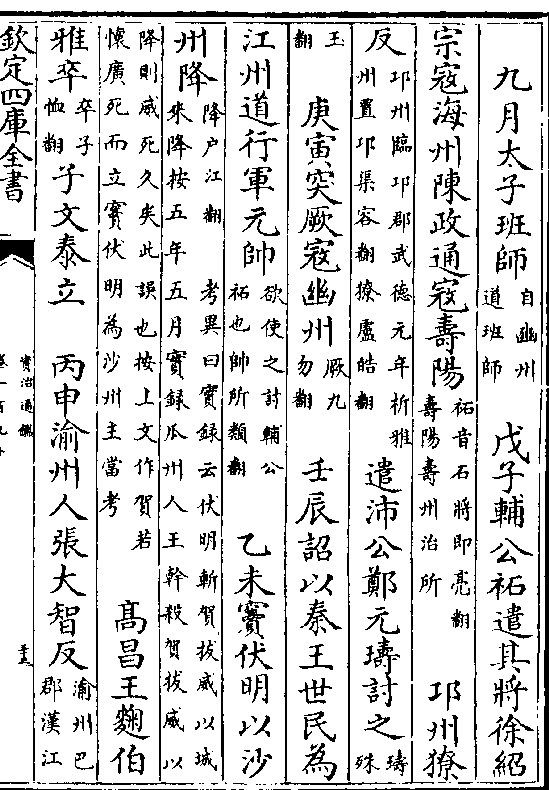 九月太子班師自幽州道班師　戊子輔公祏遣其將徐紹
宗寇海州陳政通寇壽陽祏音石將即亮翻壽陽壽州治所　卭州獠
反卭州臨卭郡武德元年析雅州置卭渠容翻獠盧皓翻　遣沛公鄭元璹討之璹殊
玉翻　庚寅突厥寇幽州厥九勿翻　壬辰詔以秦王世民為
江州道行軍元帥欲使之討輔公祏也帥所類翻　乙未竇伏明以沙
州降降户江翻　考異曰實録云伏明斬賀拔威以城來降按五年五月實録瓜州人王幹殺賀拔威以
降則威死久矣此誤也按上文作賀若懷廣死而立竇伏明為沙州主當考　髙昌王麴伯
雅卒卒子恤翻　子文泰立　丙申渝州人張大智反渝州巴郡漢江
欽定四庫全書
資治通鑑
卷一百九十